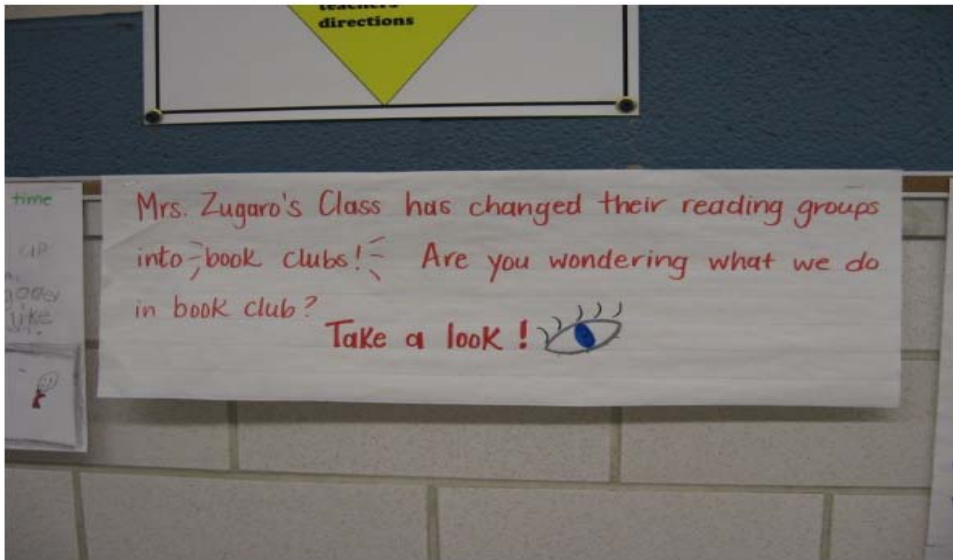 directions
Mrs. Zugaro's Class has changed their reading groups
into book clubs! Are you wondering what we do
in book club?
Take a look!
time
up
like